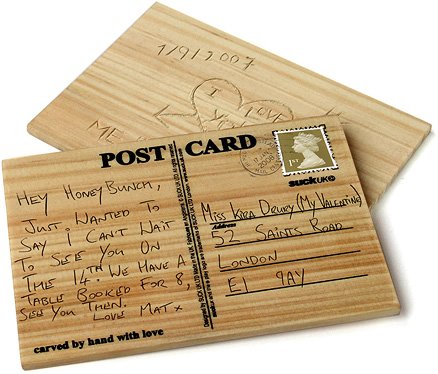 1/9/2007
I
LOVE
ME
POST CARD
1ST
SUCKUK
2008
HEY HONEYBUNCH,
JUST WANTED TO
SAY I CAN'T WAIT
TO SEE YOU ON
THE 14TH. WE HAVE A
TABLE BOOKED FOR 8,
SEE YOU THEN.
LOVE MAT x
carved by hand with love
MISS KIRA DRURY (MY VALENTINE)
Address
52 SAINTS ROAD
LONDON
E1 9AY